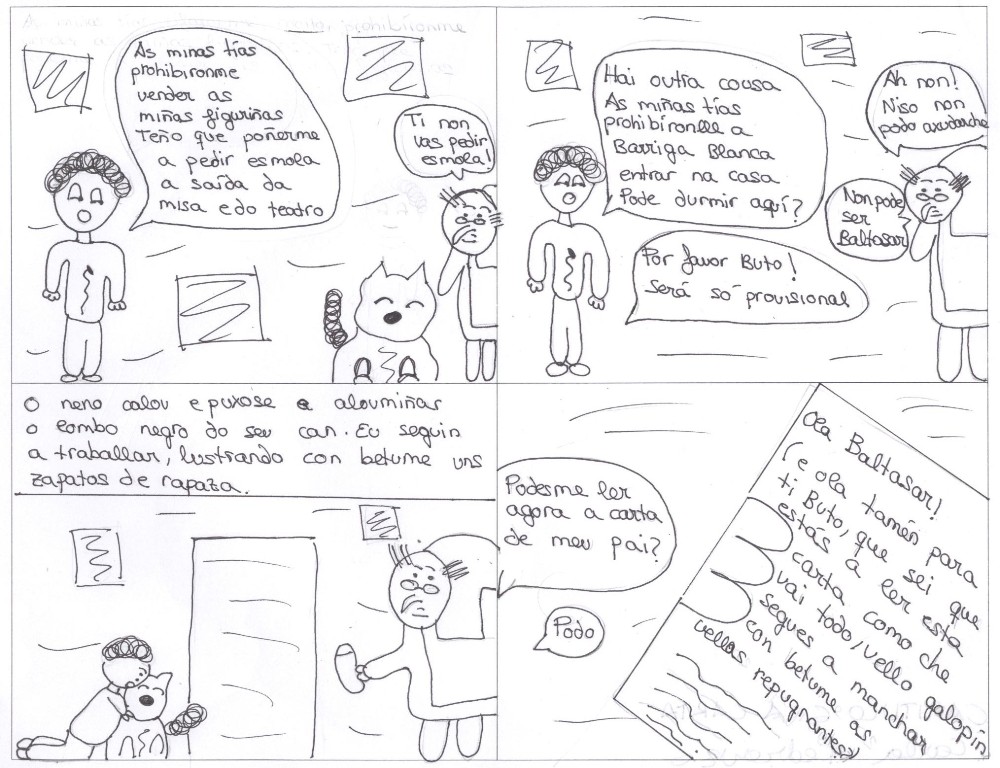 As minas tías
prohibironme
vender as
miñas figuriñas
Teño que poñerme
a pedir esmola
a saída da
misa e do teatro
Ti non
vas pedir
esmola!
Hai outra cousa
As miñas tías
prohibíronlle a
Barriga Blanca
entrar na casa
Pode durmir aquí?
Ah non!
Niso non
podo axudarche
Non pode
ser
Baltasar
Por favor Buto!
Será só provisional
O neno calou e puxose a aloumiñar
o lombo negro do seu can. Eu seguin
a traballar, lustrando con betume uns
zapatos de rapaza.
Podesme ler
agora a carta
de meu pai?
Podo
Ola Baltasar!
(e ola tamén para
ti Buto, que sei que
estás a ler esta
carta como che
vai todo, vello galopín
segues a manchar
con betume as
vellas repugnantes?